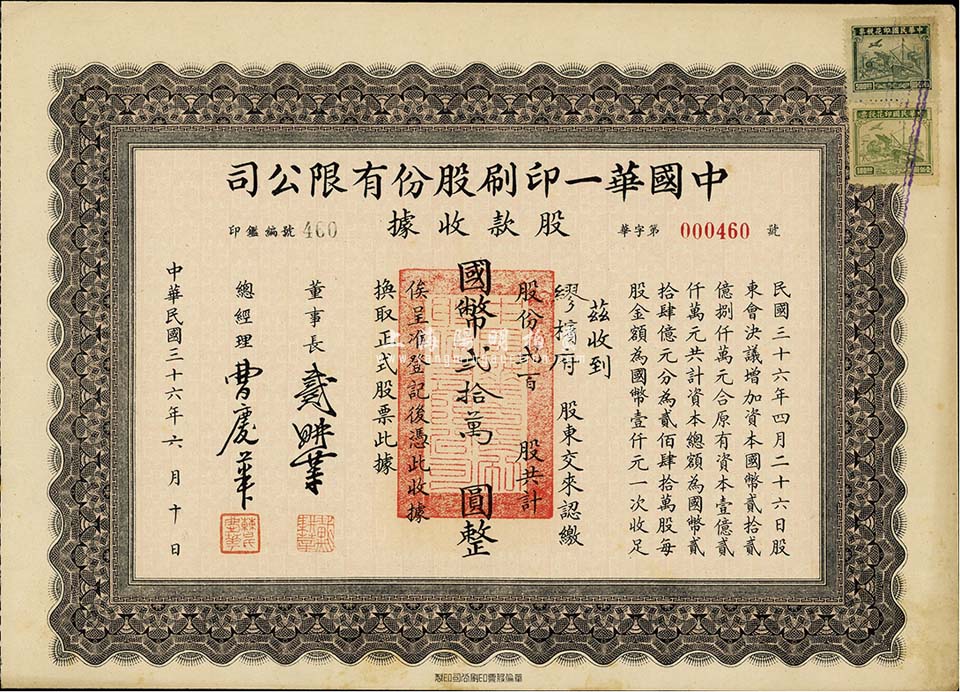 中國華一印刷股份有限公司
股款收據
華字第 000460 號
印鑑編號 460
民國三十六年四月二十六日股
東會決議增加資本國幣貳拾貳
億捌仟萬元合原有資本壹億貳
仟萬元共計資本總額為國幣貳
拾肆億元分為貳佰肆拾萬股每
股金額為國幣壹仟元一次收足
茲收到
股東交來認繳
股份弍百 股共計
國幣弍拾萬 圓整
俟呈准登記後憑此收據
換取正式股票此據
董事長
總經理 曹慶華
中華民國三十六年六月十日
中華民國印花稅票
中華民國印花稅票
上海陽明拍賣